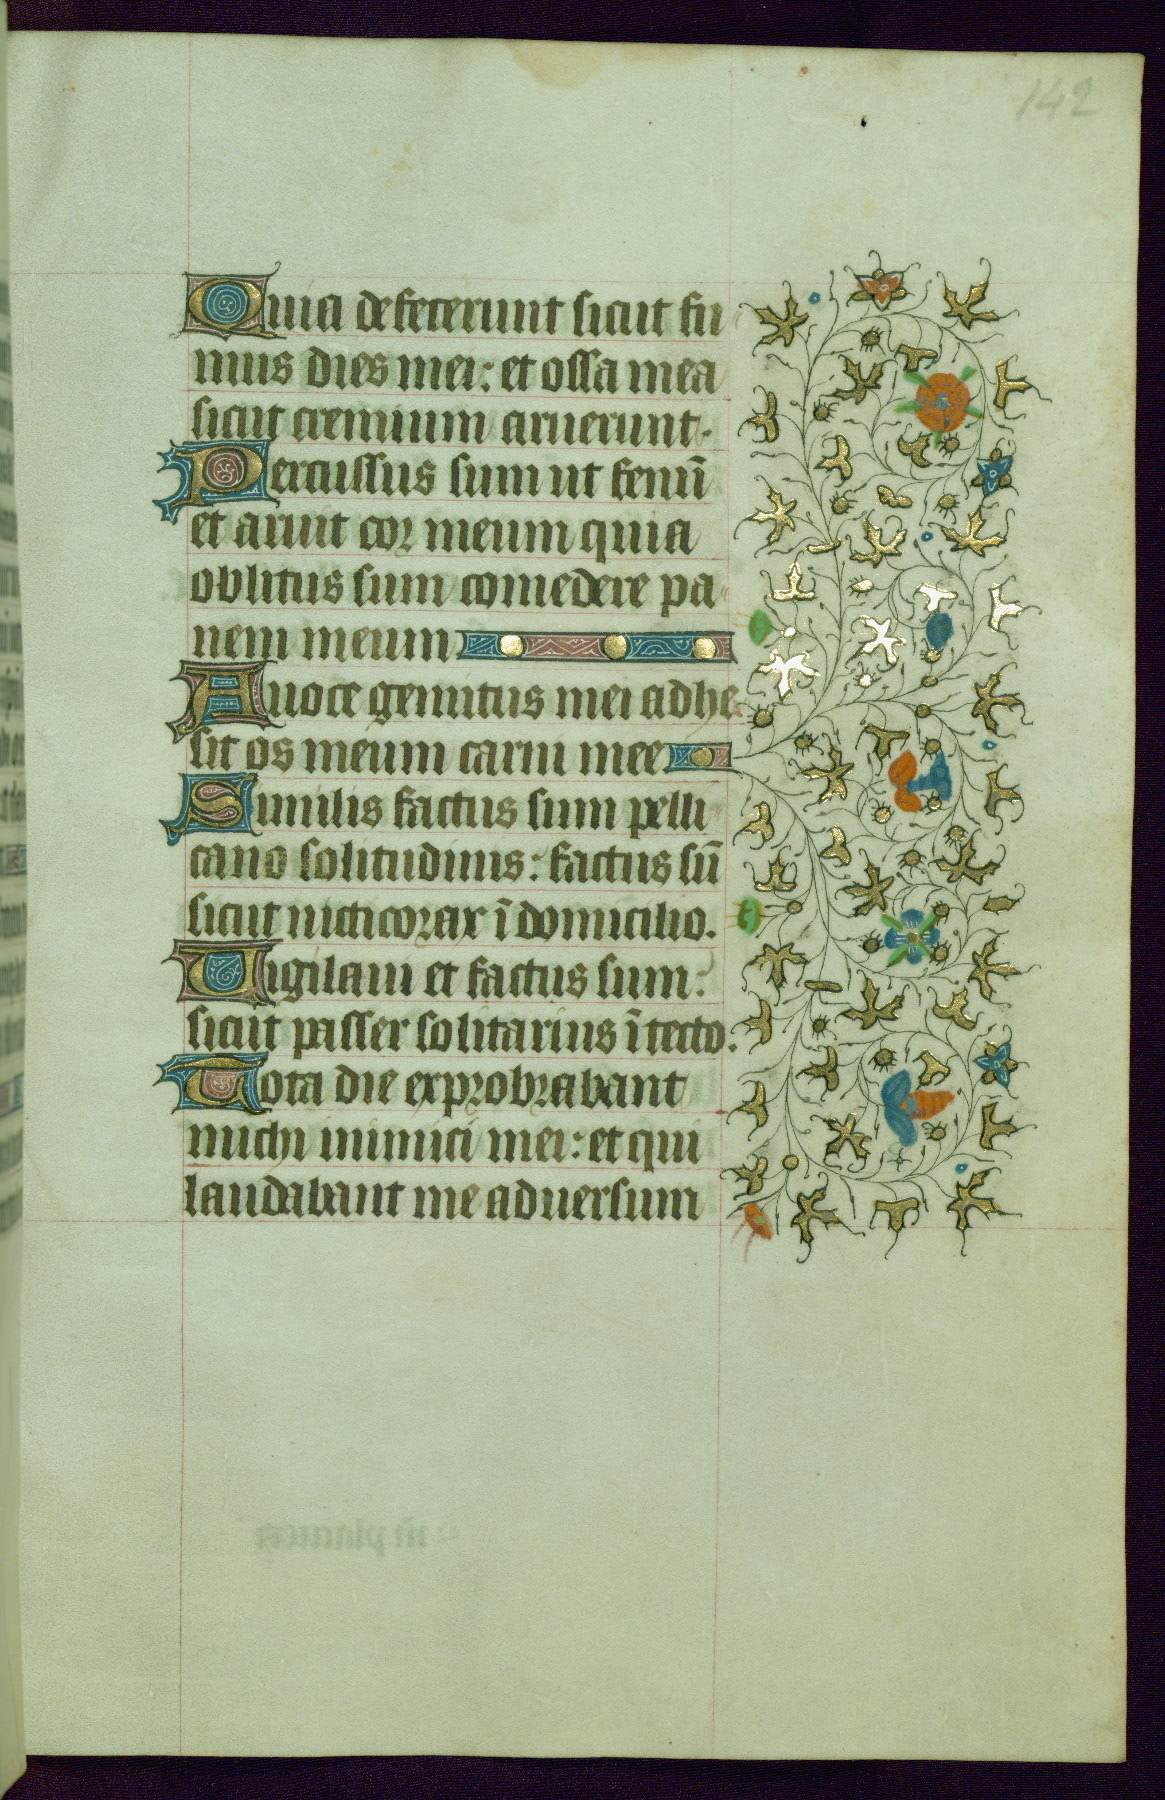 142
Quia defecerunt sicut fu
mus dies mei: et ossa mea
sicut cremium aruerunt.
Percussus sum ut fenū
et aruit cor meum quia
oblitus sum comedere pa
nem meum
A uoce gemitus mei adhe
sit os meum carni mee
Similis factus sum pelli
cano solitudinis: factus sū
sicut nicticorax ī domicilio.
Uigilaui et factus sum:
sicut passer solitarius ī tecto.
Tota die exprobrabant
michi inimici mei: et qui
laudabant me aduersum